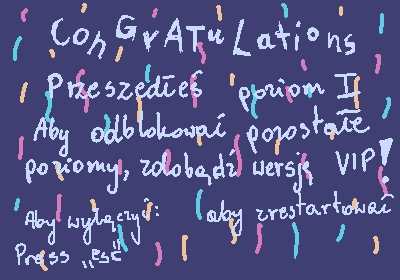 ConGrATuLations
Przeszedłeś poziom II
Aby odblokować pozostałe
poziomy, zdobądź wersję VIP!
Aby wyłączyć: aby zrestartować
Press "esc"